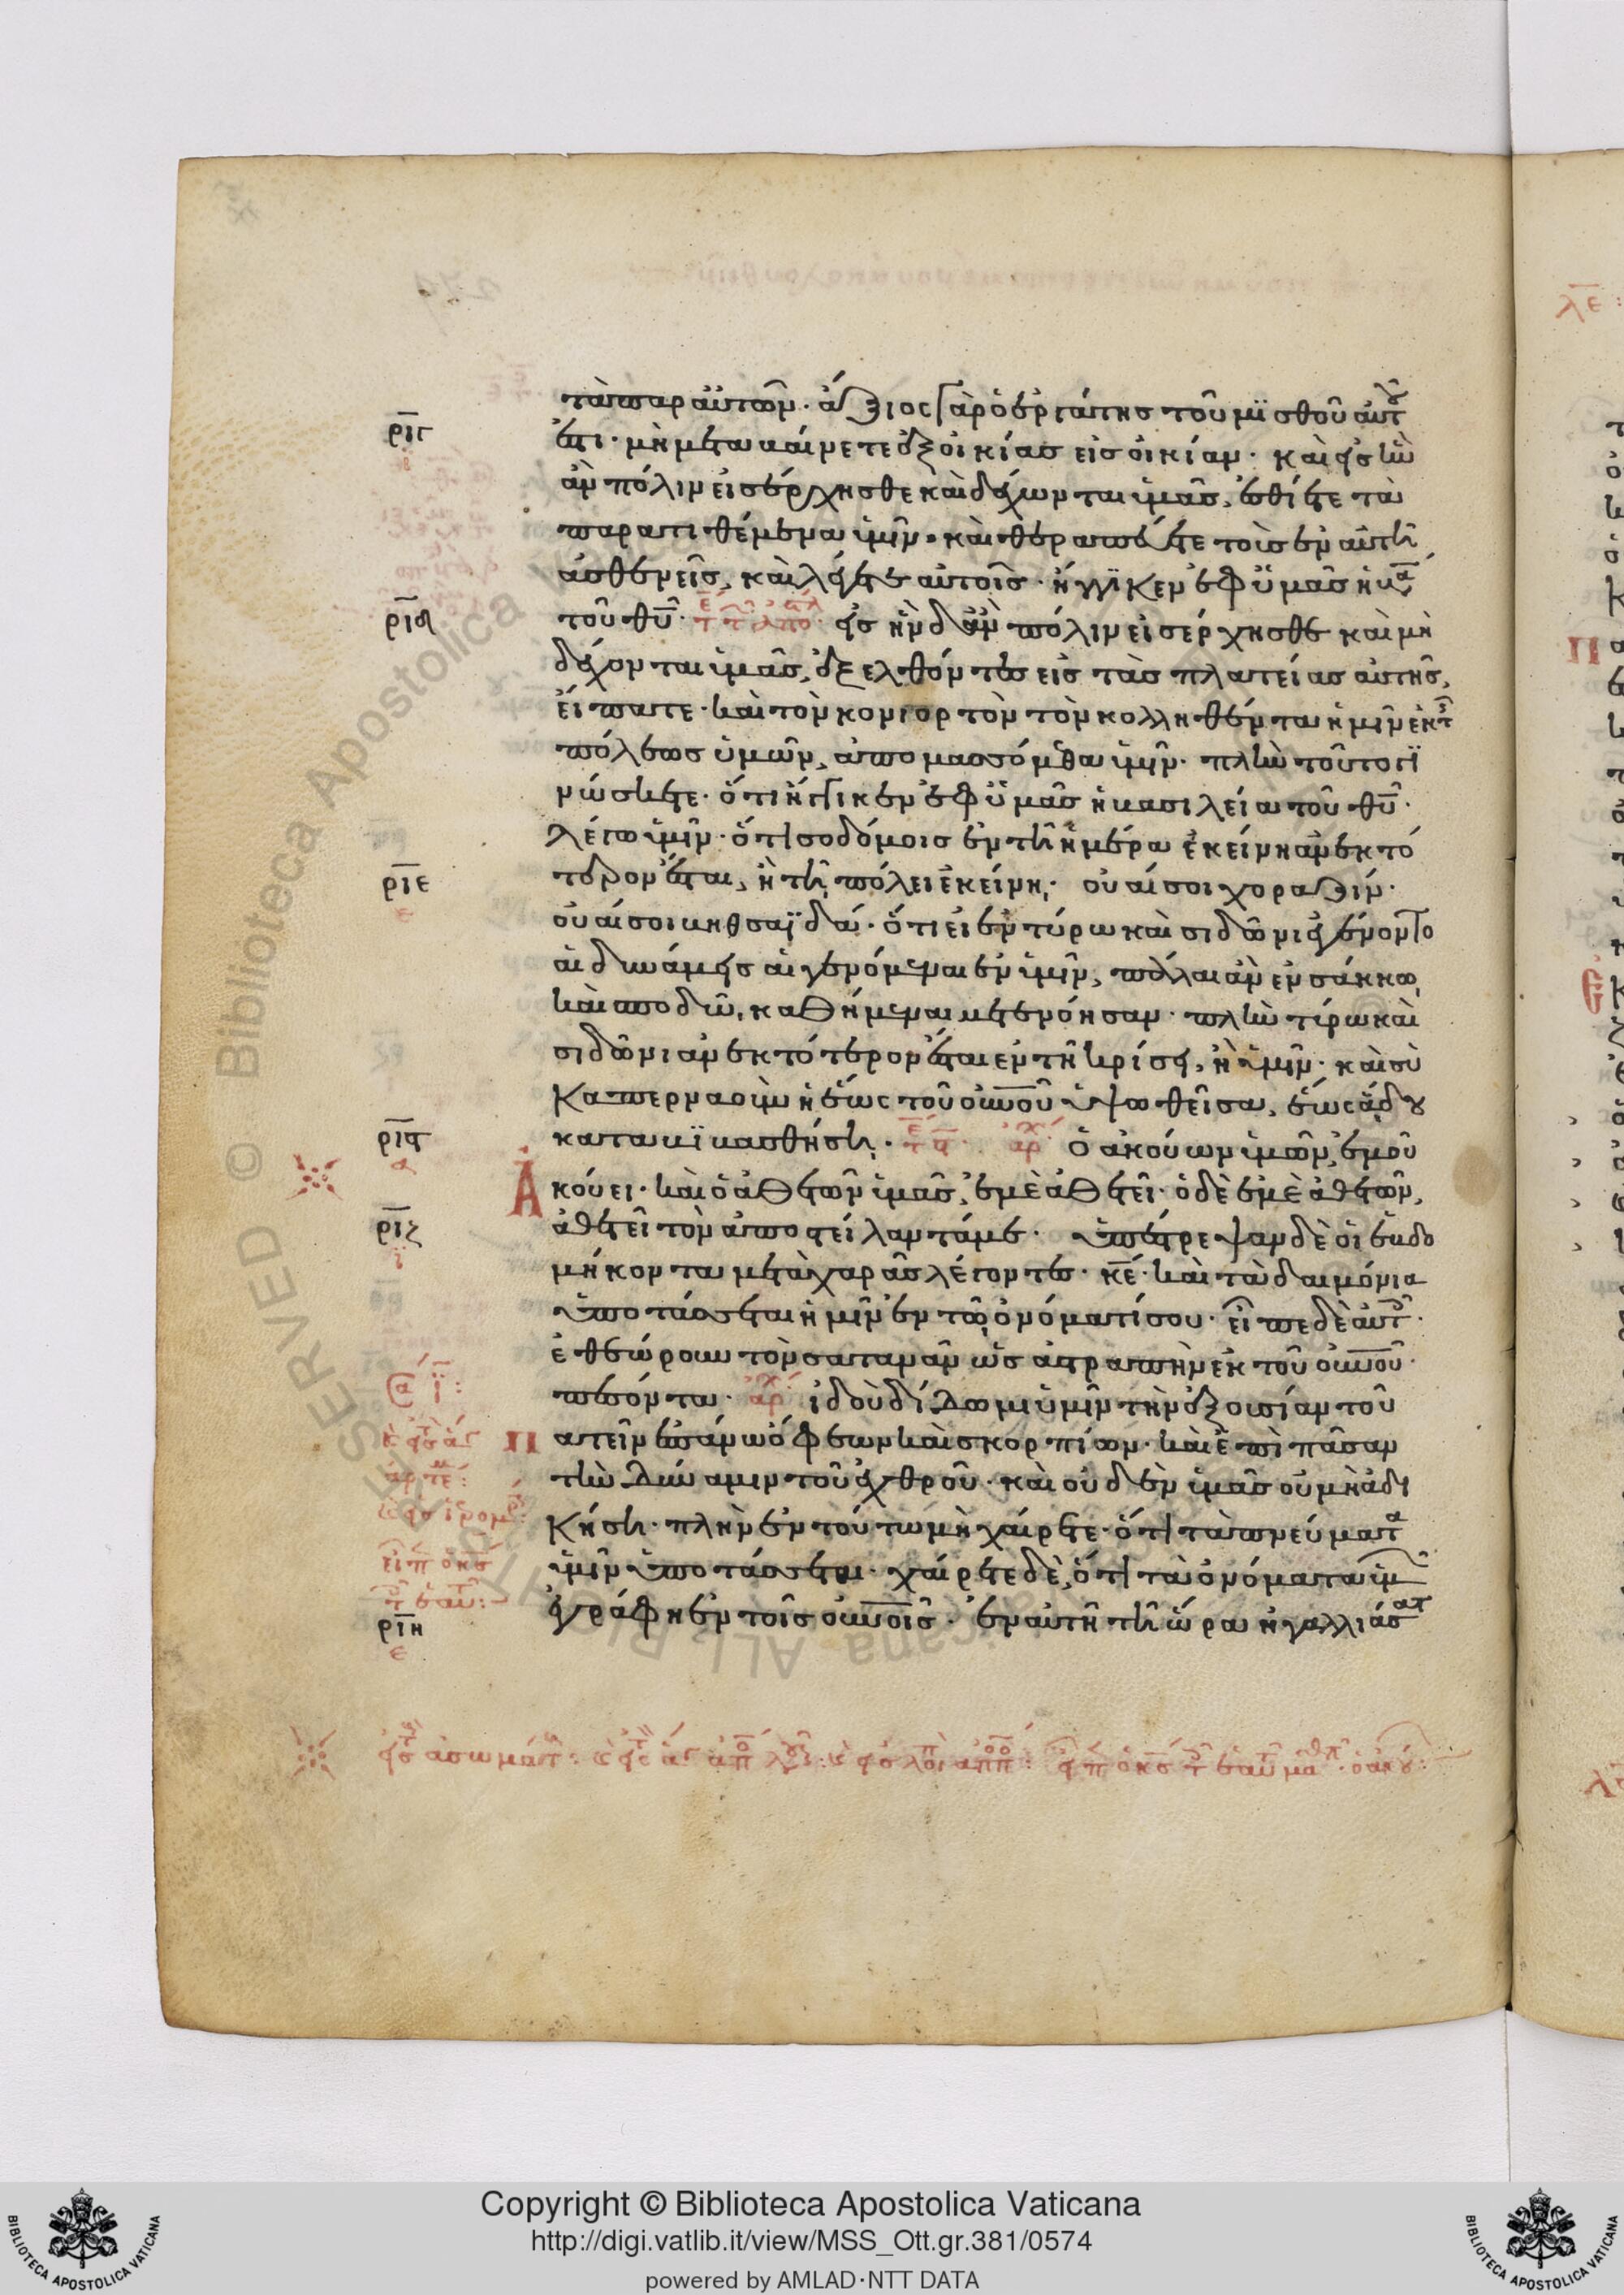 τὰ παρ αὐτῶν· ἄξιος γὰρ ὁ ἐργάτης τοῦ μϊσθοῦ αὐτοῦ
ριγ ἐστι· μὴ μεταβαίνετε ἐξ οἰκίας εἰς οἰκίαν· καὶ εἰς ἣν
ι
ἂν πόλιν εἰσέρχησθε καὶ δέχωνται ὑμᾶς, ἐσθίετε τὰ
παρατιθέμενα ὑμῖν· καὶ θεραπεύετε τοὺς ἐν αὐτῆ
ἀσθενεῖς, καὶ λέγετε αὐτοῖς· ἤγγϊκεν ἐφ ὑμᾶς ἡ βα
ριδ τοῦ θυ· εἰς ἣν δ ἂν πόλιν εἰσέρχησθε καὶ μὴ
δέχονται ὑμᾶς, ἐξελθόντες εἰς τὰς πλατείας αὐτῆς,
εἴπατε· καὶ τὸν κονιορτὸν τὸν κολληθέντα ἡμῖν ἐκ τ
πόλεως ὑμῶν, ἀπομασσόμεθα ὑμῖν· πλὴν τοῦτο γϊ
νώσκετε· ὅτι ἤγγικεν ἐφ ὑμᾶς ἡ βασιλεία τοῦ θυ·
λέγω ὑμῖν· ὅτι σοδόμοις ἐν τῆ ἡμέρα ἐκείνη ἀνεκτό
ριε τερον ἔσται, ἢ τῆ πόλει ἐκείνη· οὐαί σοι χοραζίν·
ε
οὐαί σοι βηθσαϊδά· ὅτι εἰ ἐν τύρω καὶ σιδῶνι ἐγένοντο
αἱ δυνάμεις αἱ γενόμεναι ἐν ὑμῖν, πάλαι ἂν ἐν σάκκω,
καὶ σποδῶ, καθήμεναι μετενόησαν· πλὴν τύρω καὶ
σιδῶνι ἀνεκτότερον ἔσται ἐν τῆ κρίσει, ἢ ὑμῖν· καὶ σὺ
καπερναοὺμ ἡ ἕως τοῦ οὐνοῦ ὑψωθεῖσα, ἕως ἅδου
ριϛ καταβϊβασθήση· ὁ ἀκούων ὑμῶν, ἐμοῦ
α
ἀκούει· καὶ ὁ ἀθετῶν ὑμᾶς, ἐμὲ ἀθετεῖ· ὁ δὲ ἐμὲ ἀθετῶν,
ριζ ἀθετεῖ τὸν ἀποστείλαντά με· ὑπέστρεψαν δὲ οἱ ἑβδο
ι
μήκοντα μετὰ χαρᾶς λέγοντες· κε· καὶ τὰ δαιμόνια
ὑποτάσσεται ἡμῖν ἐν τῶ ὀνόματί σου· εἶπε δὲ αὐτοῖς·
ἐθεώρουν τὸν σατανᾶν ὡς ἀστραπὴν ἐκ τοῦ οὐνοῦ·
πεσόντα· ἰδοὺ δίδωμι ὑμῖν τὴν ἐξουσίαν τοῦ
πατεῖν ἐπάνω ὄφεων καὶ σκορπίων· καὶ ἐπὶ πᾶσαν
τὴν δύναμιν τοῦ ἐχθροῦ· καὶ οὐδὲν ὑμᾶς οὐ μὴ ἀδι
κήση· πλὴν ἐν τούτω μὴ χαίρετε· ὅτι τὰ πνεύματα
ὑμῖν ὑποτάσσεται· χαίρετε δὲ, ὅτι τὰ ὀνόματα ὑμ
ριη ἐγράφη ἐν τοῖς οὐνοῖς· ἐν αὐτῆ τῆ ὥρα ἠγαλλιάσατ
ε
Copyright © Biblioteca Apostolica Vaticana
http://digi.vatlib.it/view/MSS_Ott.gr.381/0574
powered by AMLAD·NTT DATA